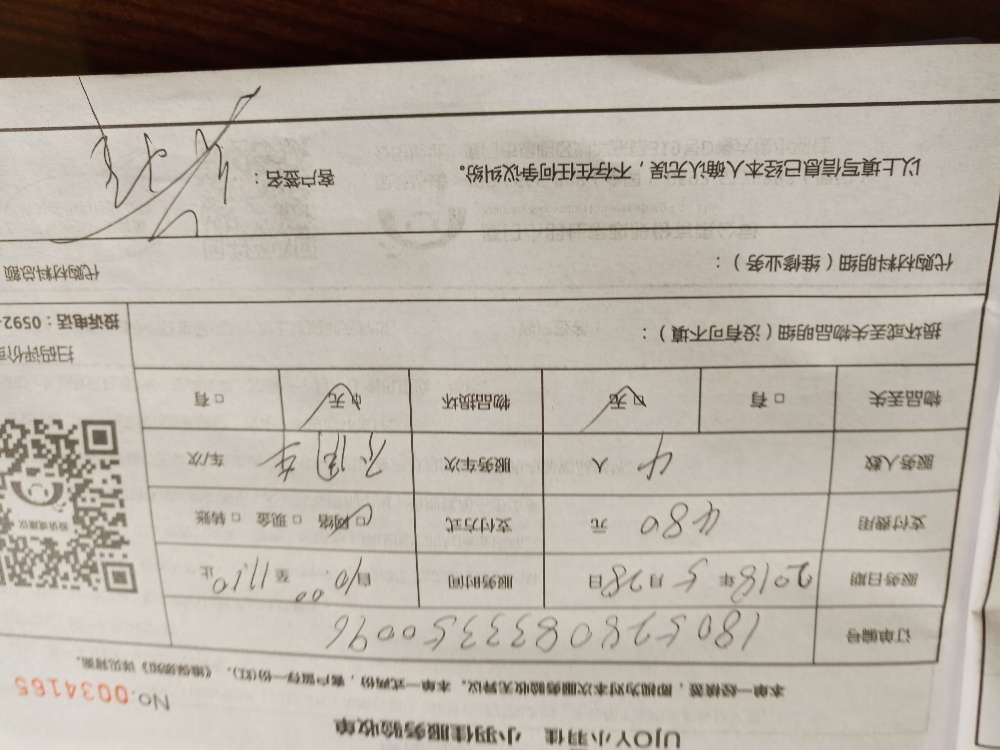 UJOY小羽佳 小羽佳服务验收单
No.0034165
本单一经核签，即视为对本次服务验收无异议。本单一式两份，客户留存一份(红)。详见背面。
订单编号 1805280833350096
服务日期 2018年5月28日 服务时间 自10:00至11:10止
支付费用 480元 支付方式 □网络 □现金 □转账
服务人数 4人 服务车次 车/次
物品丢失 □有 □无 物品损坏 □无 □有
扫码评价
投诉电话：0592-
损坏或丢失物品明细（没有可不填）：
代购材料明细（维修业务）： 代购材料总额
以上填写信息已经本人确认无误，不存在任何争议纠纷。 客户签名：